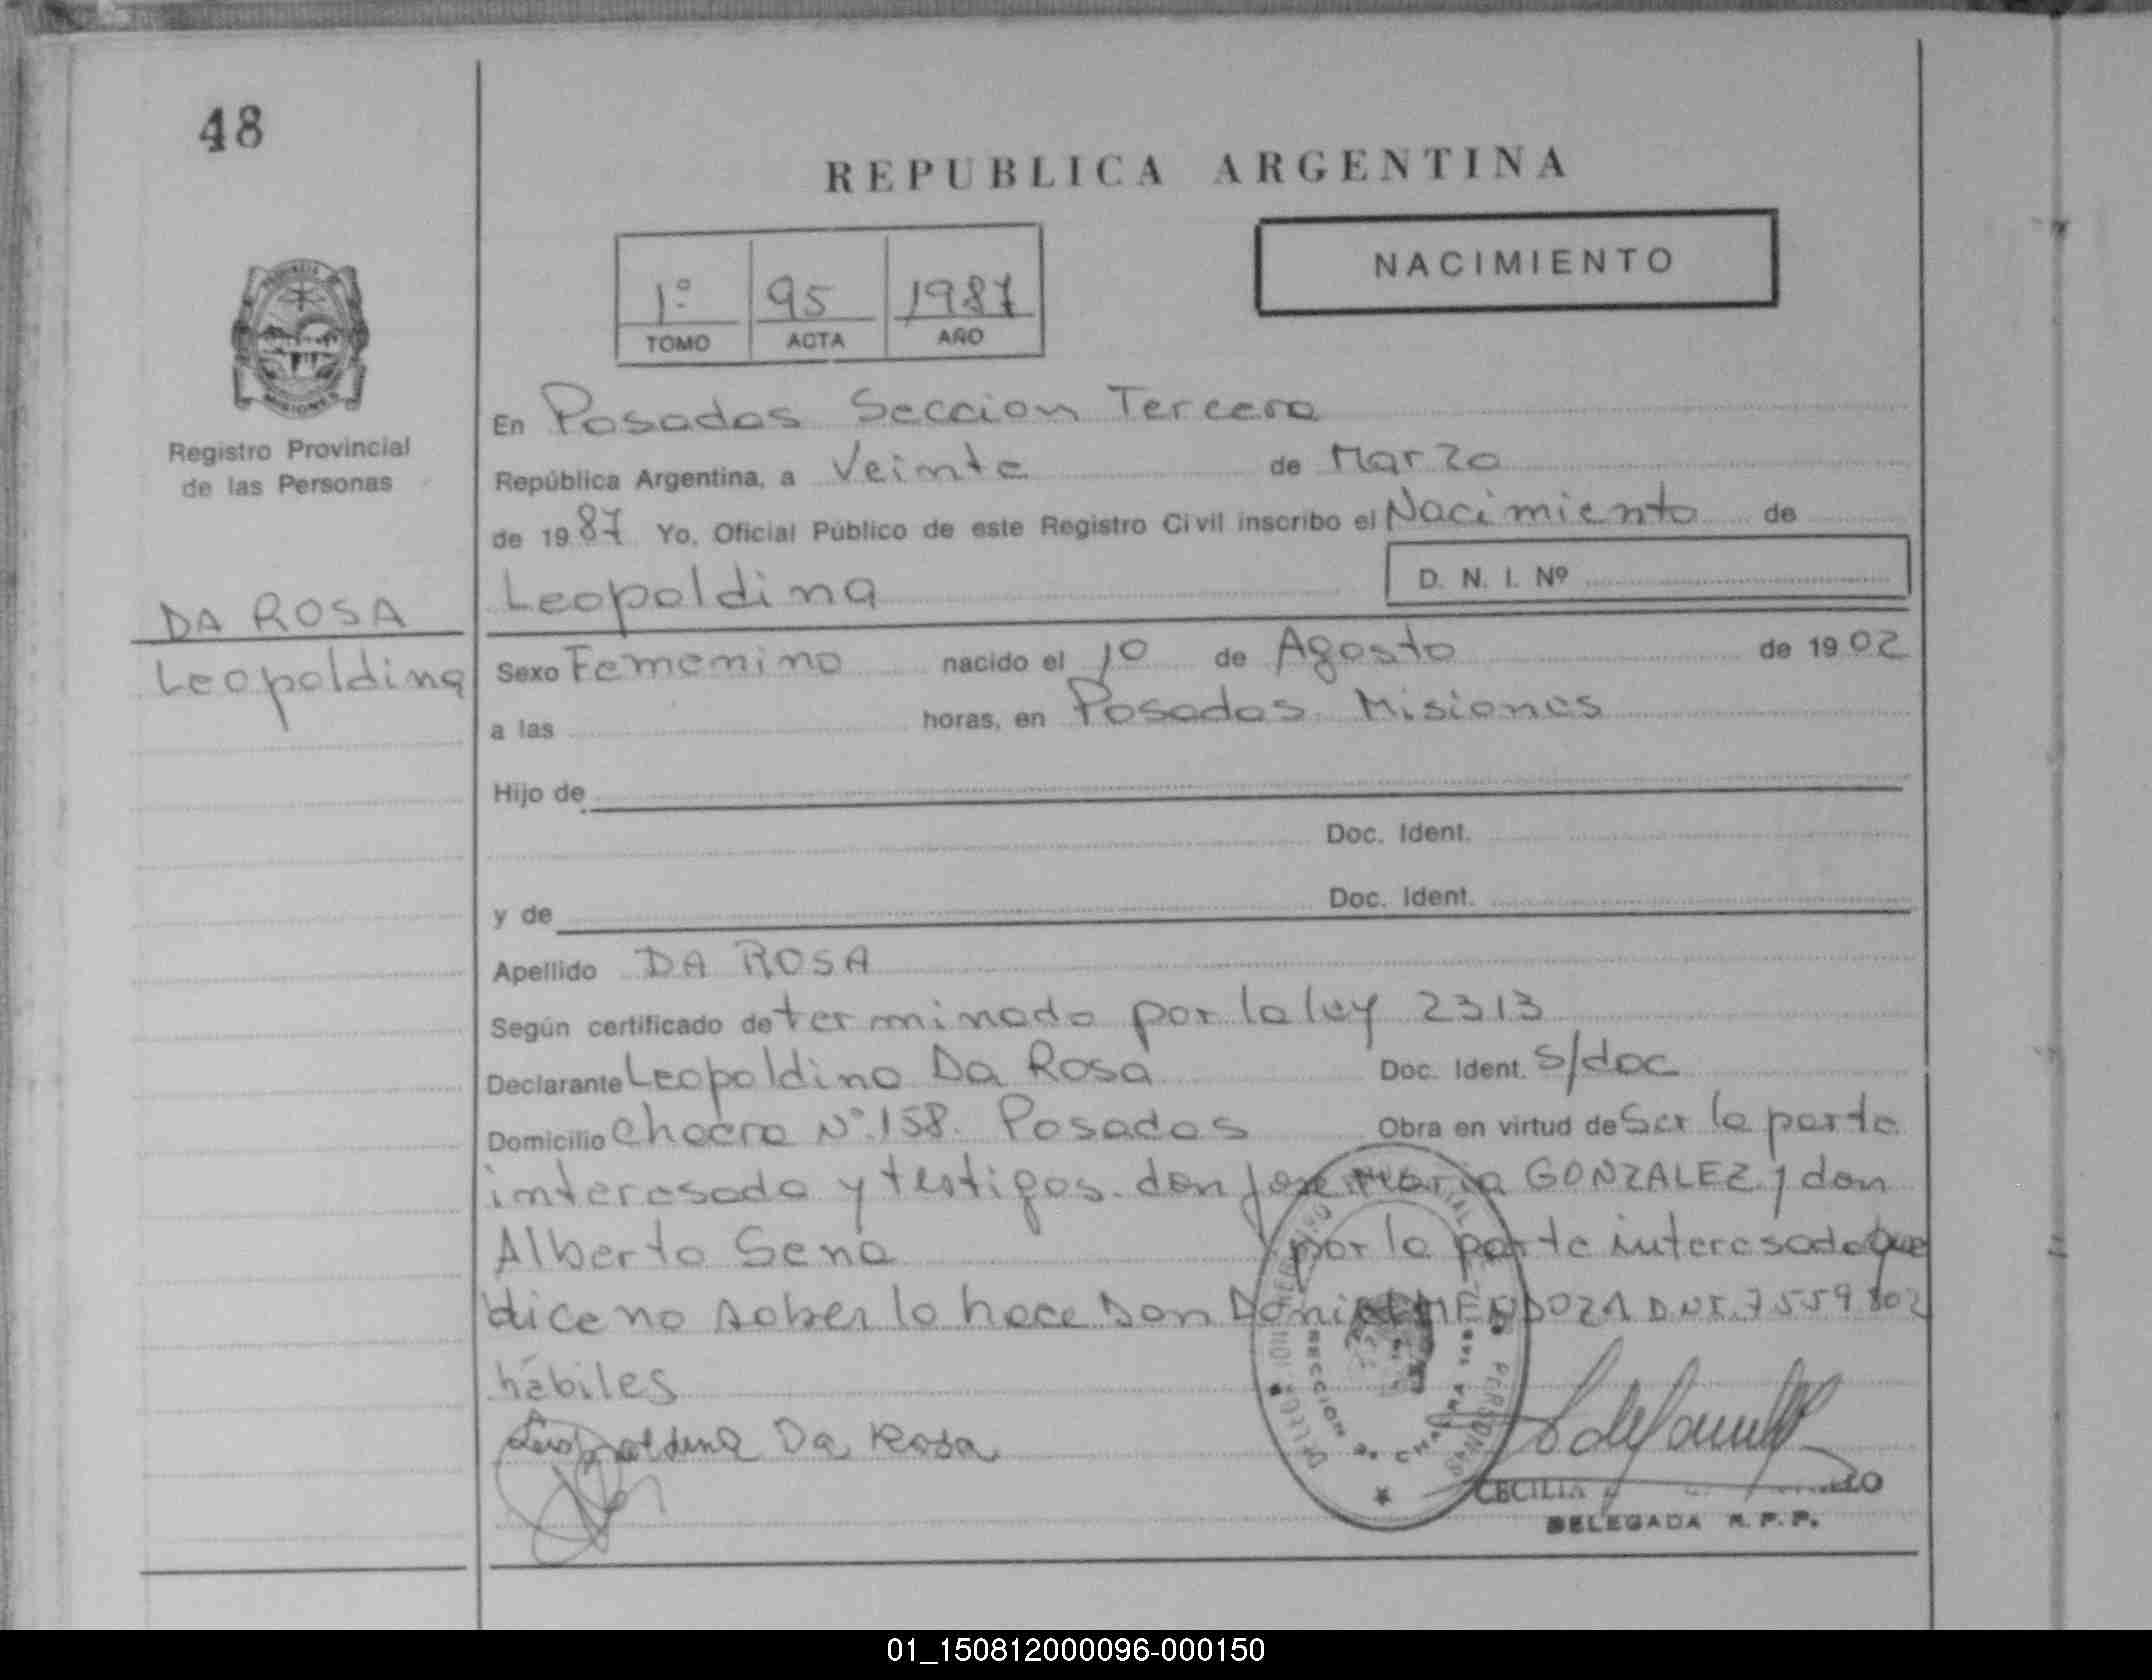 48
REPUBLICA ARGENTINA
NACIMIENTO
1º 95 1987
TOMO ACTA AÑO
Registro Provincial
de las Personas
En Posadas Seccion Tercera
República Argentina, a Veinte de Marzo
de 1987 Yo, Oficial Público de este Registro Civil inscribo el Nacimiento de
Leopoldina D. N. I. Nº
DA ROSA
Leopoldina
Sexo Femenino nacido el 10 de Agosto de 1902
a las horas, en Posadas Misiones
Hijo de
Doc. Ident.
y de Doc. Ident.
Apellido DA ROSA
Según certificado determinado por la ley 2313
Declarante Leopoldina Da Rosa Doc. Ident. S/doc
Domicilio Chacra Nº 158. Posadas Obra en virtud de Ser la parte
interesada y testigos don Jose Maria GONZALEZ y don
Alberto Sena por la parte interesada que
dice no saber lo hace Don MENDOZA D.N.I. 7559802
hábiles
Leopoldina Da Rosa
CECILIA
DELEGADA R.P.P.
01_150812000096-000150